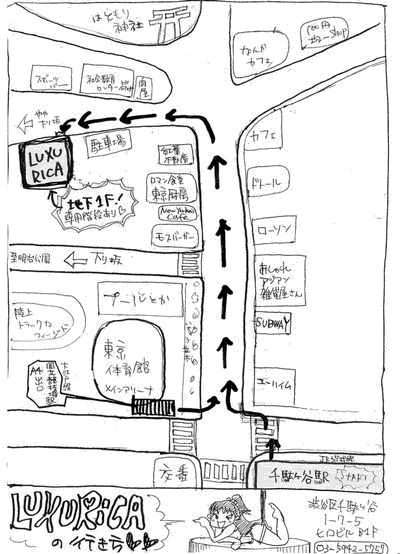 はともり
神社
なんか
カフェ
100円
均一shop
スポーツ
バー
社会教育
センター
やや
下り坂
駐車場
LUXU
RICA
地下1F!
専用階段あり
紅葉
不動産
ロマン食堂
東京厨房
New York
Cafe
モスバーガー
カフェ
ドトール
ローソン
おしゃれ
アジアン
雑貨屋さん
SUBWAY
至明治公園
下り坂
プールとか
陸上
トラックな
フィールド
東京
体育館
メインアリーナ
大江戸線
国立競技場駅
A4
出口
ユーハイム
交番
千駄ヶ谷駅
START
LUXURICA
の行き方
渋谷区千駄ヶ谷
1-7-5
ヒロビルB1F
03-5942-5757